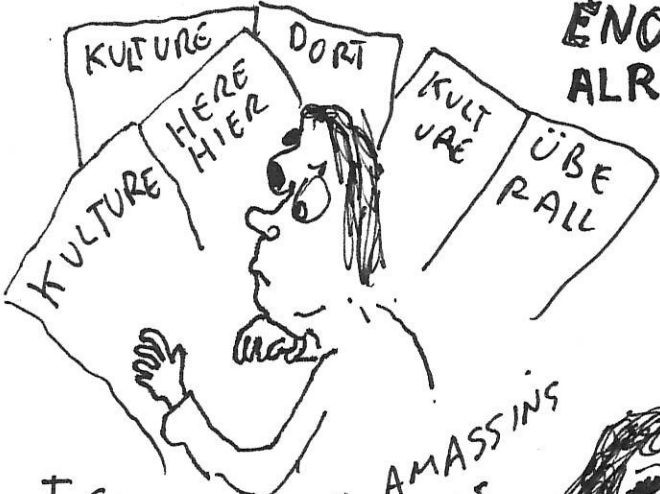 KULTURE
DORT
HERE
HIER
KULTURE
KULT
URE
ÜBE
RALL
ENO
ALR
AMASSING